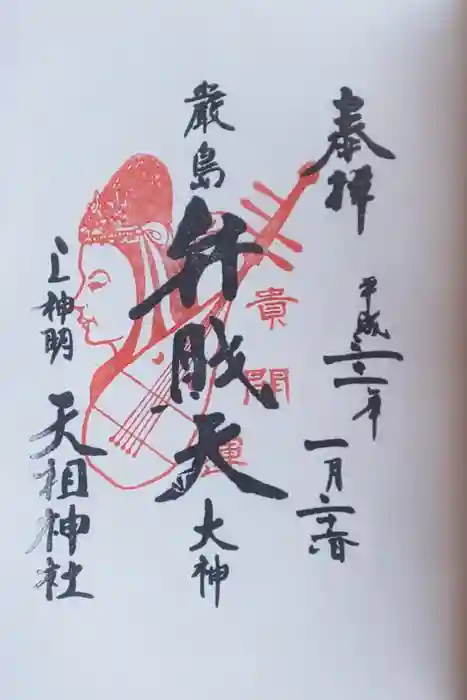 奉拝
平成三十一年
一月二十六日
貴開運
厳島
弁財天
大神
上神明
天祖神社